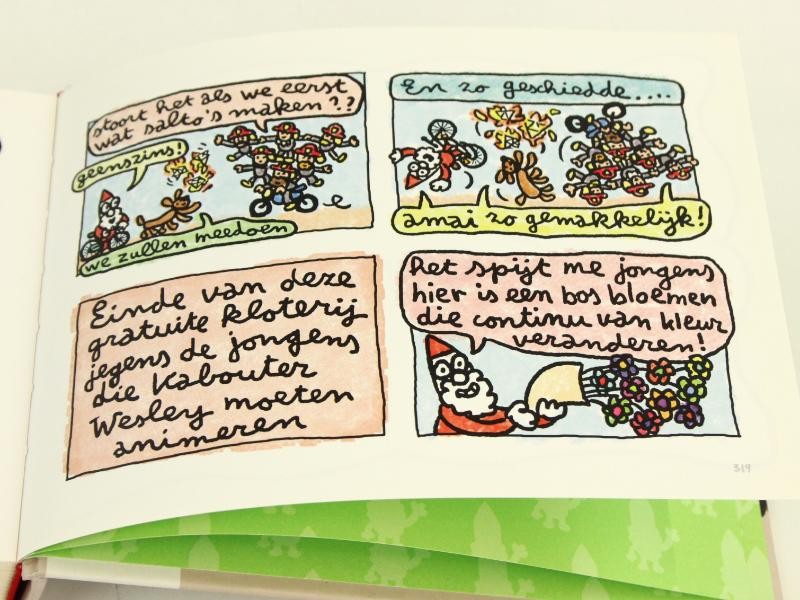 stoort het als we eerst
wat salto's maken??
geenszins!
we zullen meedoen
En zo geschiedde....
amai zo gemakkelijk!
Einde van deze
gratuite kloterij
jegens de jongens
die Kabouter
Wesley moeten
animeren
het spijt me jongens
hier is een bos bloemen
die continu van kleur
veranderen!
319